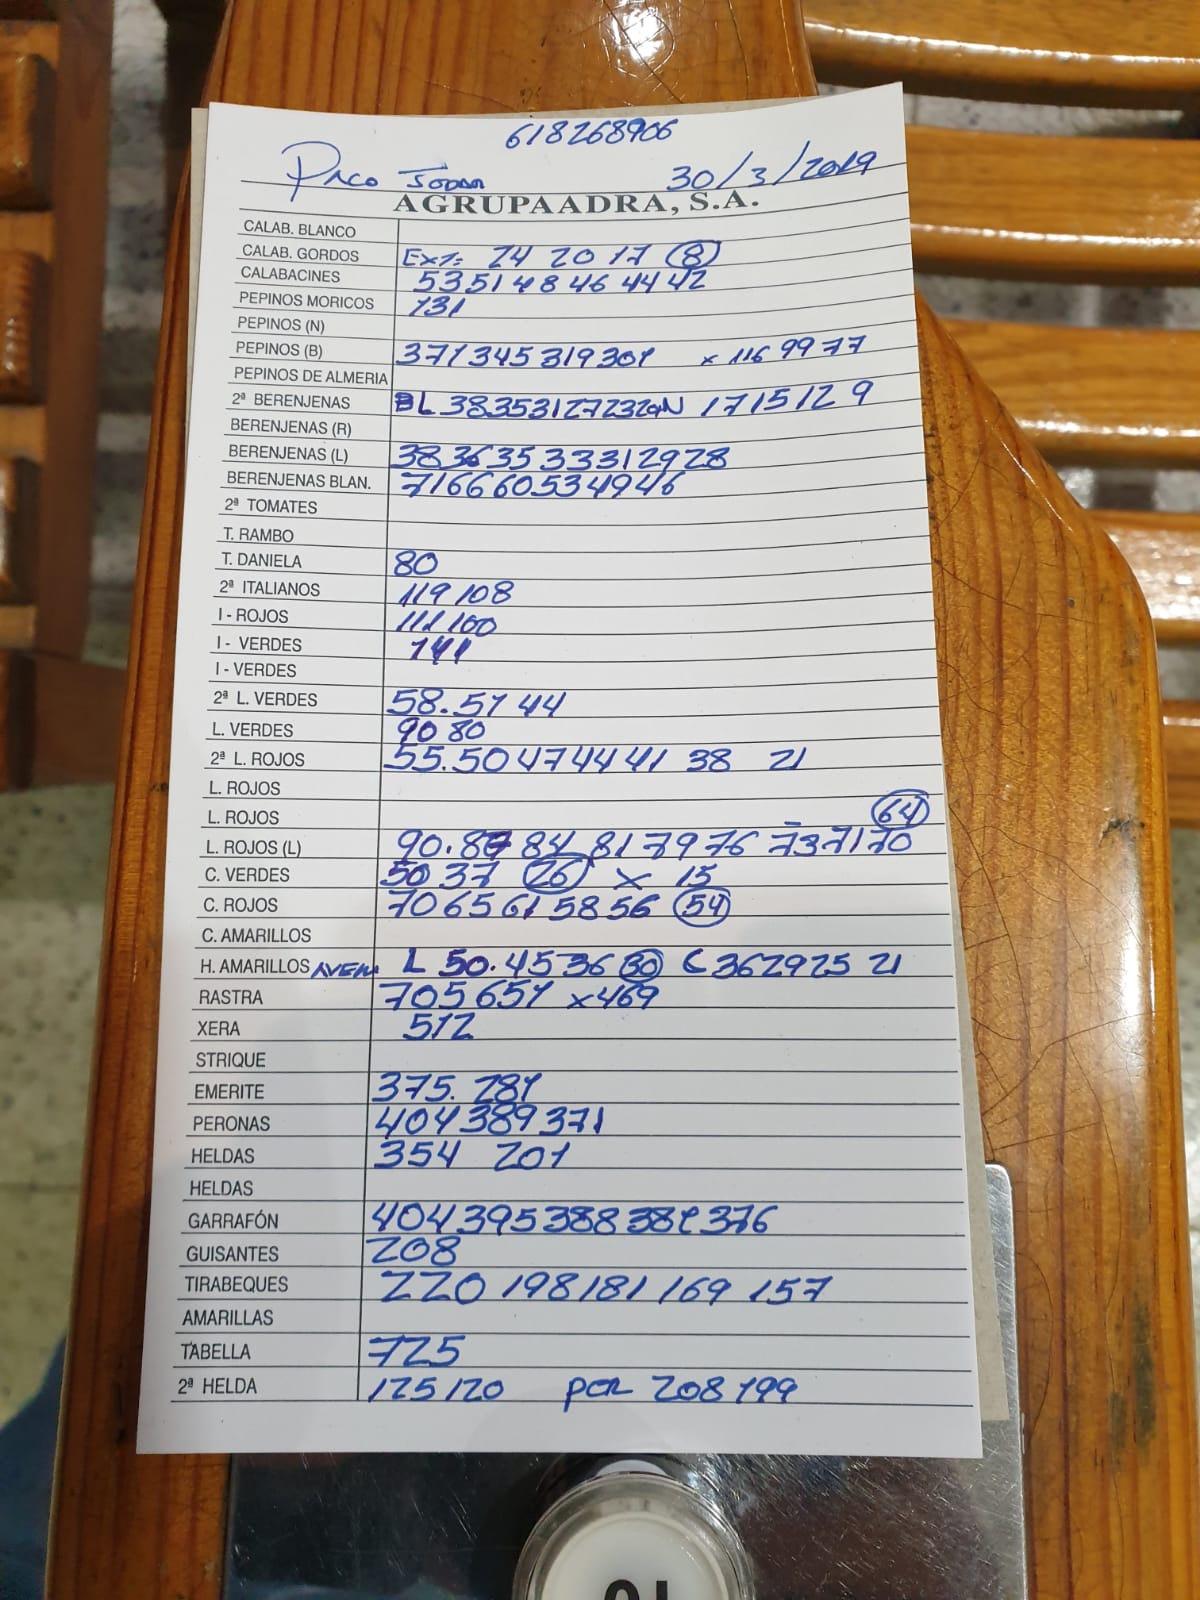 618268906
Paco 30/3/2019
AGRUPAADRA, S.A.
CALAB. BLANCO
CALAB. GORDOS Ext: 24 20 17 8
CALABACINES 53 51 48 46 44 42
PEPINOS MORICOS 131
PEPINOS (N)
PEPINOS (B) 371 345 319 301 x 116 99 77
PEPINOS DE ALMERIA
2ª BERENJENAS BL 38 35 31 27 23 20 N 17 15 12 9
BERENJENAS (R)
BERENJENAS (L) 38 36 35 33 33 31 29 28
BERENJENAS BLAN. 71 66 60 53 49 46
2ª TOMATES
T. RAMBO
T. DANIELA 80
2ª ITALIANOS 119 108
I - ROJOS 111 100
I - VERDES 141
I - VERDES
2ª L. VERDES 58. 51 44
L. VERDES 90 80
2ª L. ROJOS 55. 50 47 44 41 38 21
L. ROJOS
L. ROJOS 64
L. ROJOS (L) 90. 87 84 81 79 76 73 71 70
C. VERDES 50 37 26 x 15
C. ROJOS 70 65 61 58 56 54
C. AMARILLOS
H. AMARILLOS L 50. 45 36 30 C 36 29 25 21
RASTRA 705 651 x 469
XERA 512
STRIQUE
EMERITE 375. 281
PERONAS 404 389 371
HELDAS 354 201
HELDAS
GARRAFÓN 404 395 388 381 376
GUISANTES 208
TIRABEQUES 220 198 181 169 157
AMARILLAS
TABELLA 725
2ª HELDA 125 120 per 208 199